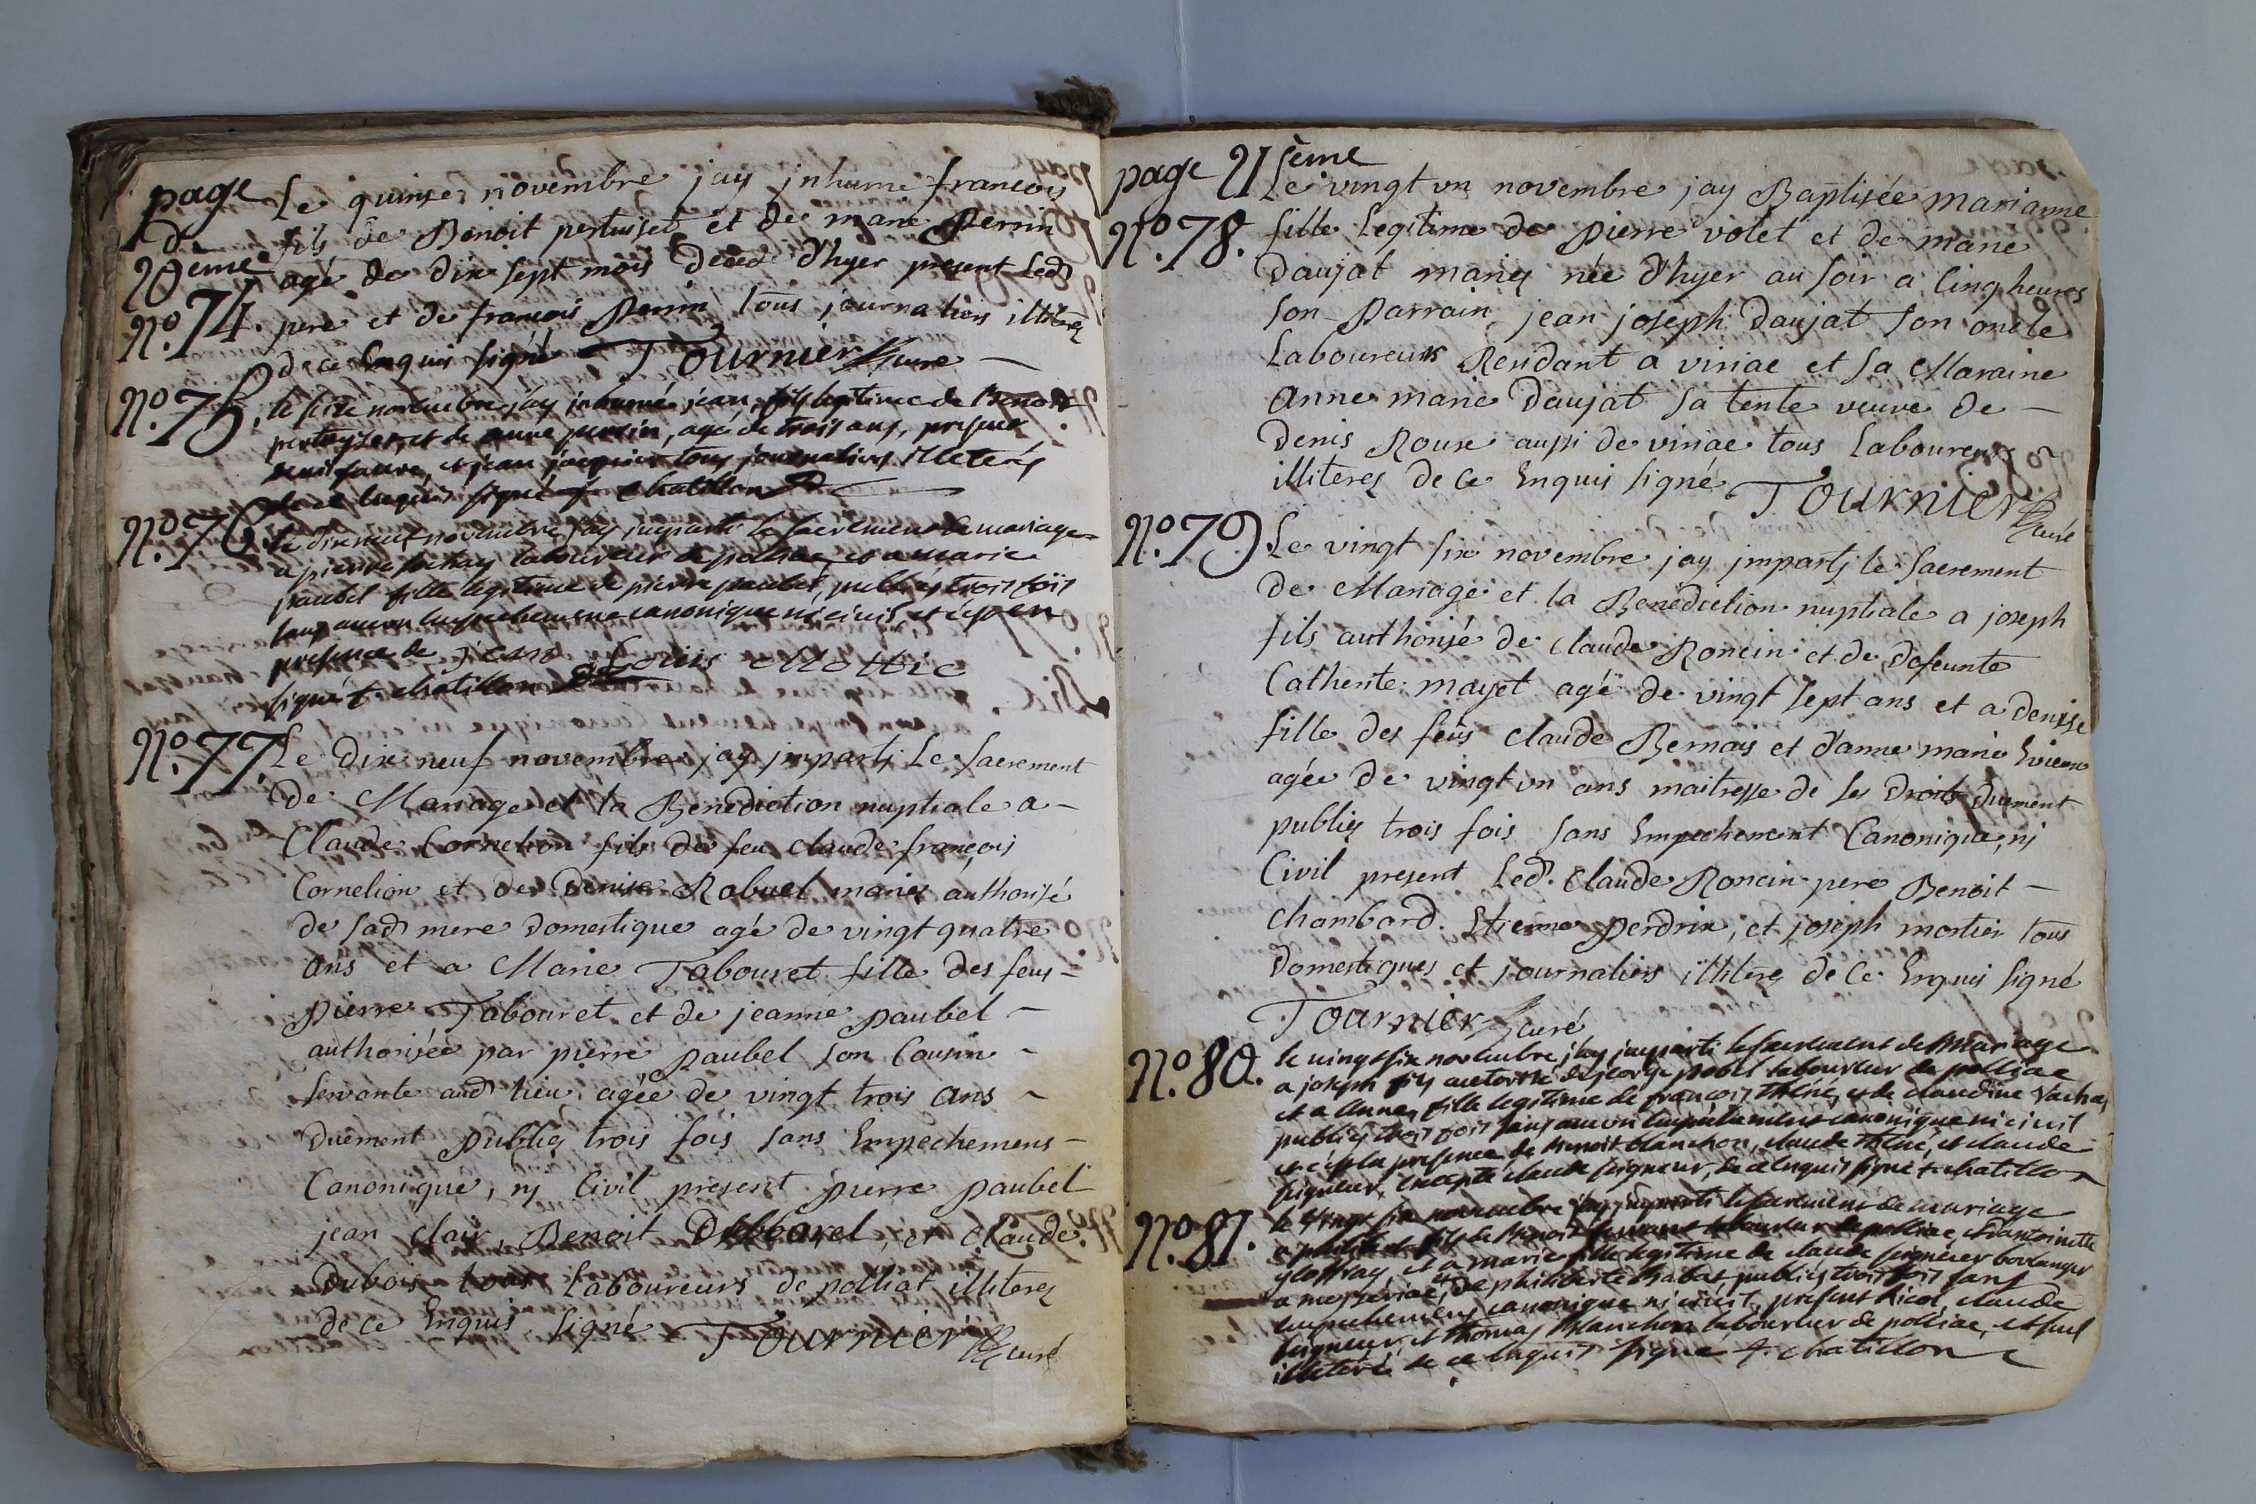 page Le quinze novembre jay jnhumé francois
de fils de Benoit pertuiset et de marie Perrin
20eme agé de dix sept mois decedé d'hyer present led
No. 74. pere et de francois Perrin tous journaliers illiterez
de ce Enquis signé Tournier curé
No. 75. le seize novembre j'ay inhumé jean, fils legitime de Benoit
pertuyset, et de anne perrin, agé de trois ans, presens
denis faure, et jean jacquier tous journaliers illeterés
de ce Enquis signé f. chatillon
No. 76. le dix neuf novembre j'ay imparti le sacrement de mariage
a pierre laboureur de polliac, et a marie
paubel fille legitime de pierre paubel, publiés trois fois
sans aucun empechement canonique ni civil, et c'est en
presence de jean Louis
signé f. chatillon
No. 77. Le dix neuf novembre jay jmparti Le Sacrement
de Mariage et la Benediction nuptiale a
Claude Cornelion fils de feu claude françois
Cornelion et de Denise Robuel mariez authorisé
de sad mere domestique agé de vingt quatre
ans et a Marie Tabouret fille des feus
pierre Tabouret et de jeanne paubel
authorisée par pierre paubel son Cousin
servante aud lieu agée de vingt trois ans
Duement publiez trois fois sans Empechemens
Canonique, nj Civil present pierre paubel
jean clair, Benoit Debourel, et claude
Dubois tous Laboureurs de polliat illiterez
de ce Enquis signé Tournier curé
page 21 ième
No. 78. Le vingt vn novembre jay Baptisée marianne
fille legitime de pierre volet et de marie
Daujat mariez née d'hyer au soir a Cinq heures
son Parrain jean joseph Daujat son oncle
Laboureurs Rendant a viriac et sa Maraine
anne marie Daujat sa tente veuve de
denis Roux aussi de viriac tous Laboureurs
illiterez de ce Enquis signé Tournier
curé
No. 79. Le vingt six novembre jay jmparti le Sacrement
de Mariage et la Benediction nuptiale a joseph
fils authorisé de claude Roncin et de defeunte
Catherite mayet agé de vingt sept ans et a denise
fille des feus claude Bernais et d'anne marie
agée de vingt vn ans maitresse de ses Droits duement
publiez trois fois sans Empechement Canonique, nj
Civil present Led. Claude Roncin pere Benoit
chambard. Etienne perdrix, et joseph mortier tous
Domestiques et journaliers illiterez de Ce Enquis signé
Tournier curé
No. 80. le vingt six novembre j'ay imparti le sacrement de Mariage
a joseph fils autorisé de george pobel laboureur de polliac
et a Anne, fille legitime de françois Thené, et de claudine vachas
publiés trois fois sans aucun empechement canonique ni civil
et c'est la presence de Benoit blanchon, claude Thené, et claude
seigneur, excepté claude seigneur, de ce Enquis signé f. chatillon
No. 81. le vingt six novembre j'ay imparti le sacrement de mariage
a fils de Benoit laboureur de polliac, et antoinette
et a marie fille legitime de claude seigneur boulanger
a mezeriac, et de philiberte chabas publiés trois fois sans
empechement canonique ni civil, presens nicol, claude
seigneur, et thomas Blanchon laboureur de polliac, et seul
illeteré de ce Enquis signé f. chatillon